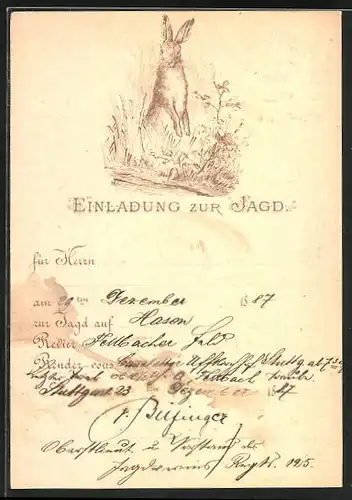 EINLADUNG ZUR JAGD.
für Herrn
am 29 ten Dezember 1887
zur Jagd auf Hasen
Revier Fellbacher Feld
Rendez-vous
Fellbach
Stuttgart 23 Dezember 1887
v. Bilfinger
Oberstlieut u. Vorstand des
Jagdvereins Regts. 125.